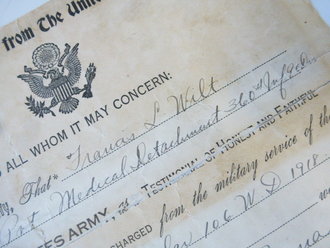 from The Un
ALL WHOM IT MAY CONCERN:
That Francis L Wilt
Pvt Medical Detachment 360th Inf
ES ARMY, as a TESTIMONIAL OF HONEST AND FAITHFUL
CHARGED from the military service of the
106 W D 1918